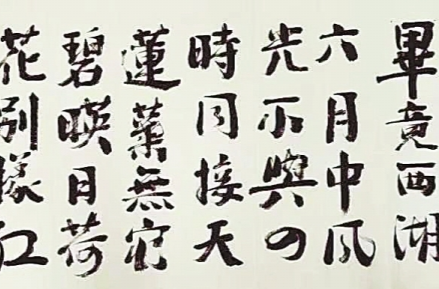 畢竟西湖
六月中风
光不與四
時同接天
蓮葉無窮
碧暎日荷
花别樣红